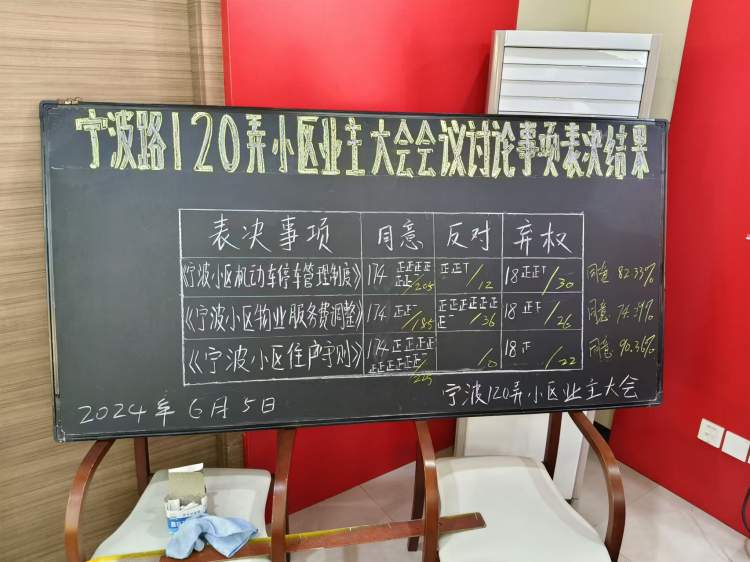 宁波路120弄小区业主大会会议讨论事项表决结果
表决事项 同意 反对 弃权
《宁波小区机动车停车管理制度》 174 正正正正 /205 正正丅 /12 18 正正丅 /30 同意 82.33%
《宁波小区物业服务费调整》 174 正正一 /185 正正正正正正正一 /36 18 正下 /26 同意 74.29%
《宁波小区住户守则》 174 正正正正正正正正正正一 /225 /0 18 /22 同意 90.36%
2024年6月5日 宁波120弄小区业主大会